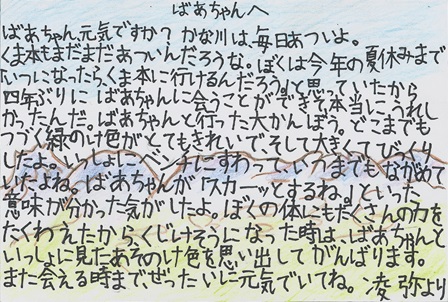 ばあちゃんへ
ばあちゃん元気ですか？かな川は、毎日あついよ。
くま本もまだまだあついんだろうな。ぼくは今年の夏休みまで
「いつになったらくま本に行けるんだろう。」と思っていたから
四年ぶりにばあちゃんに会うことができて本当にうれし
かったんだ。ばあちゃんと行った大かんぼう。どこまでも
つづく緑のけ色がとてもきれいで、そして大きくてびっくり
したよ。いっしょにベンチにすわって、いつまでもながめて
いたよね。ばあちゃんが「スカーッとするね。」といった
意味が分かった気がしたよ。ぼくの体にもたくさんの力を
たくわえたから、くじけそうになった時は、ばあちゃんと
いっしょに見たあのけ色を思い出してがんばります。
また会える時まで、ぜったいに元気でいてね。凌弥より